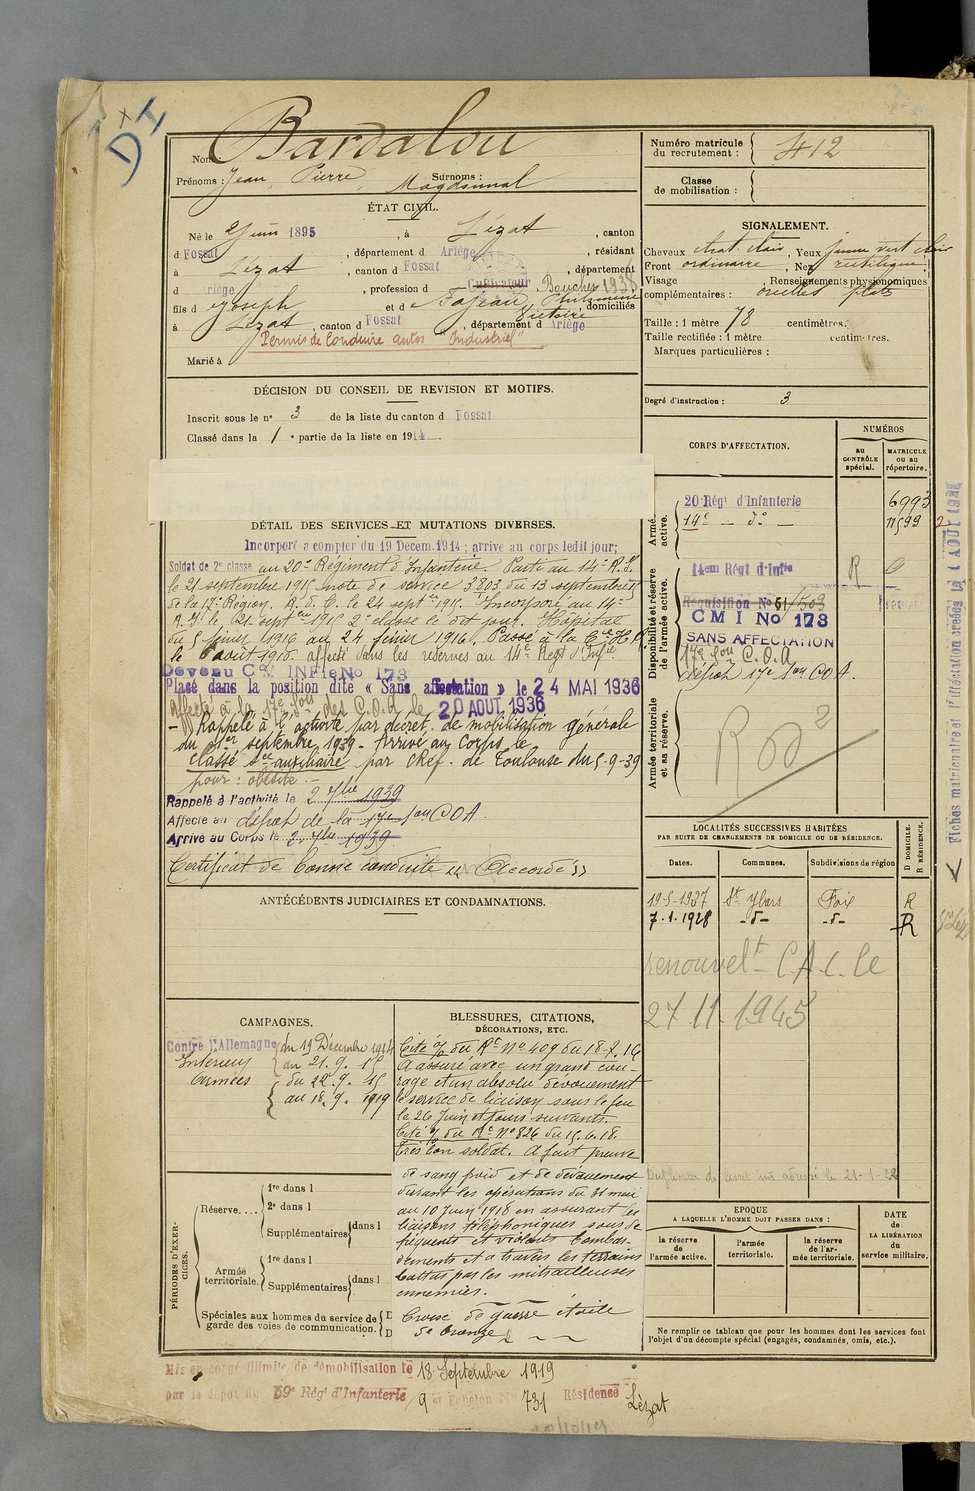 DI
Nom : Bardalou
Prénoms : Jean, Pierre, Surnoms : Magdounal
ÉTAT CIVIL.
Né le 2 Juin 1895, à Lézat, canton
d Fossat, département d Ariège, résidant
à Lézat, canton d Fossat, département
d Ariège, profession d Cultivateur Boucher 1938
fils d Joseph et d Fajeau, Philomène Victoire, domiciliés
à Lézat, canton d Fossat, département d Ariège
"Permis de Conduire autos "Industriel"
Marié à
DÉCISION DU CONSEIL DE REVISION ET MOTIFS.
Inscrit sous le n° 3 de la liste du canton d Fossat
Classé dans la 1e partie de la liste en 1914.
DÉTAIL DES SERVICES ET MUTATIONS DIVERSES.
Incorporé à compter du 19 Décem. 1914 ; arrivé au corps ledit jour;
Soldat de 2e classe au 20e Régiment d'Infanterie. Passé au 14e R.I.
le 21 septembre 1915 note de service 3803 du 13 septembre 15
de la 17e Région. A. d. C. le 24 sept bre 1915. Incorporé au 14e
R.I. le 21 sept bre 1915 2e classe le dit jour. Hôpital
du 5 février 1916 au 24 février 1916. Passé à la Cie H.R.
le 6 août 1916. affecté dans les réserves au 14e Regt d'Infie
Devenu C.M. INFie No 173
Placé dans la position dite « Sans affectation » le 24 MAI 1936
Affecté à la 17e Son des C.O.A. le 20 AOUT 1936
- Rappelé à l'activité par décret de mobilisation générale
du 1er septembre 1939 - Arrivé au Corps le
classé Sce auxiliaire par CRéf. de Toulouse du 5-9-39
pour : obésité. -
Rappelé à l'activité le 2 7bre 1939
Affecté au dépôt de la 17e Son COA.
Arrivé au Corps le 2 7bre 1939
Certificat de bonne conduite "Accordé"
ANTÉCÉDENTS JUDICIAIRES ET CONDAMNATIONS.
CAMPAGNES.
Contre l'Allemagne du 19 Décembre 1914
Intérieur au 21. 9. 15
Armées du 22. 9. 15
au 18. 9. 1919
BLESSURES, CITATIONS,
DÉCORATIONS, ETC.
Cité O/ du Rt N° 409 du 18-7-16
A assuré avec un grand cou-
rage et un absolu dévouement
le service de liaison sous le feu
le 26 Juin et jours suivants.
Cité O/ du Rt N° 826 du 15.6.18.
Très bon soldat. A fait preuve
de sang froid et de dévouement
durant les opérations du 31 mai
au 10 Juin 1918 en assurant les
liaisons téléphoniques sous de
fréquents et violents bombar-
dements et à travers les terrains
battus par les mitrailleuses
ennemies.
Croix de guerre étoile
de bronze
PÉRIODES D'EXERCICES.
Réserve....
1re dans l
2e dans l
Supplémentaires dans l
Armée territoriale.
1re dans l
Supplémentaires dans l
Spéciales aux hommes du service de
garde des voies de communication.
D
D
Numéro matricule
du recrutement : 412
Classe
de mobilisation :
SIGNALEMENT.
Cheveux chat. clair, Yeux jaune vert clair
Front ordinaire, Nez rectiligne
Visage Renseignements physionomiques
complémentaires : oreilles plates
Taille : 1 mètre 78 centimètres.
Taille rectifiée : 1 mètre centimètres.
Marques particulières :
Degré d'instruction : 3
CORPS D'AFFECTATION.
NUMÉROS
au CONTRÔLE spécial.
MATRICULE ou au répertoire.
Armée active.
20 Régt d'Infanterie 6993
14e - do - 11599
Disponibilité et réserve de l'armée active.
14em Régt d'Infie R
Réquisition No 61/
C M I No 173
SANS AFFECTATION
17e Son C.O.A
dépôt 17e Son COA.
Armée territoriale et sa réserve.
Ro 2
LOCALITÉS SUCCESSIVES HABITÉES
PAR SUITE DE CHANGEMENTS DE DOMICILE OU DE RÉSIDENCE.
Dates. Communes. Subdivisions de région D DOMICILE. R RÉSIDENCE.
19-5-1937 St Ybars Foix R
7.1.1928 -d- -d- R
renouvelt C.A.C. le
27.11.1945
EPOQUE
A LAQUELLE L'HOMME DOIT PASSER DANS :
la réserve de l'armée active.
l'armée territoriale.
la réserve de l'armée territoriale.
DATE
de
LA LIBÉRATION
du
service militaire.
Ne remplir ce tableau que pour les hommes dont les services font
l'objet d'un décompte spécial (engagés, condamnés, omis, etc.).
Fiches matriculaire et d'affectation créées le 1 AOUT
Mis en congé illimité de démobilisation le 18 Septembre 1919
par le dépôt du 59e Rég' d'Infanterie, 9 er Echelon No 731 Résidence Lézat